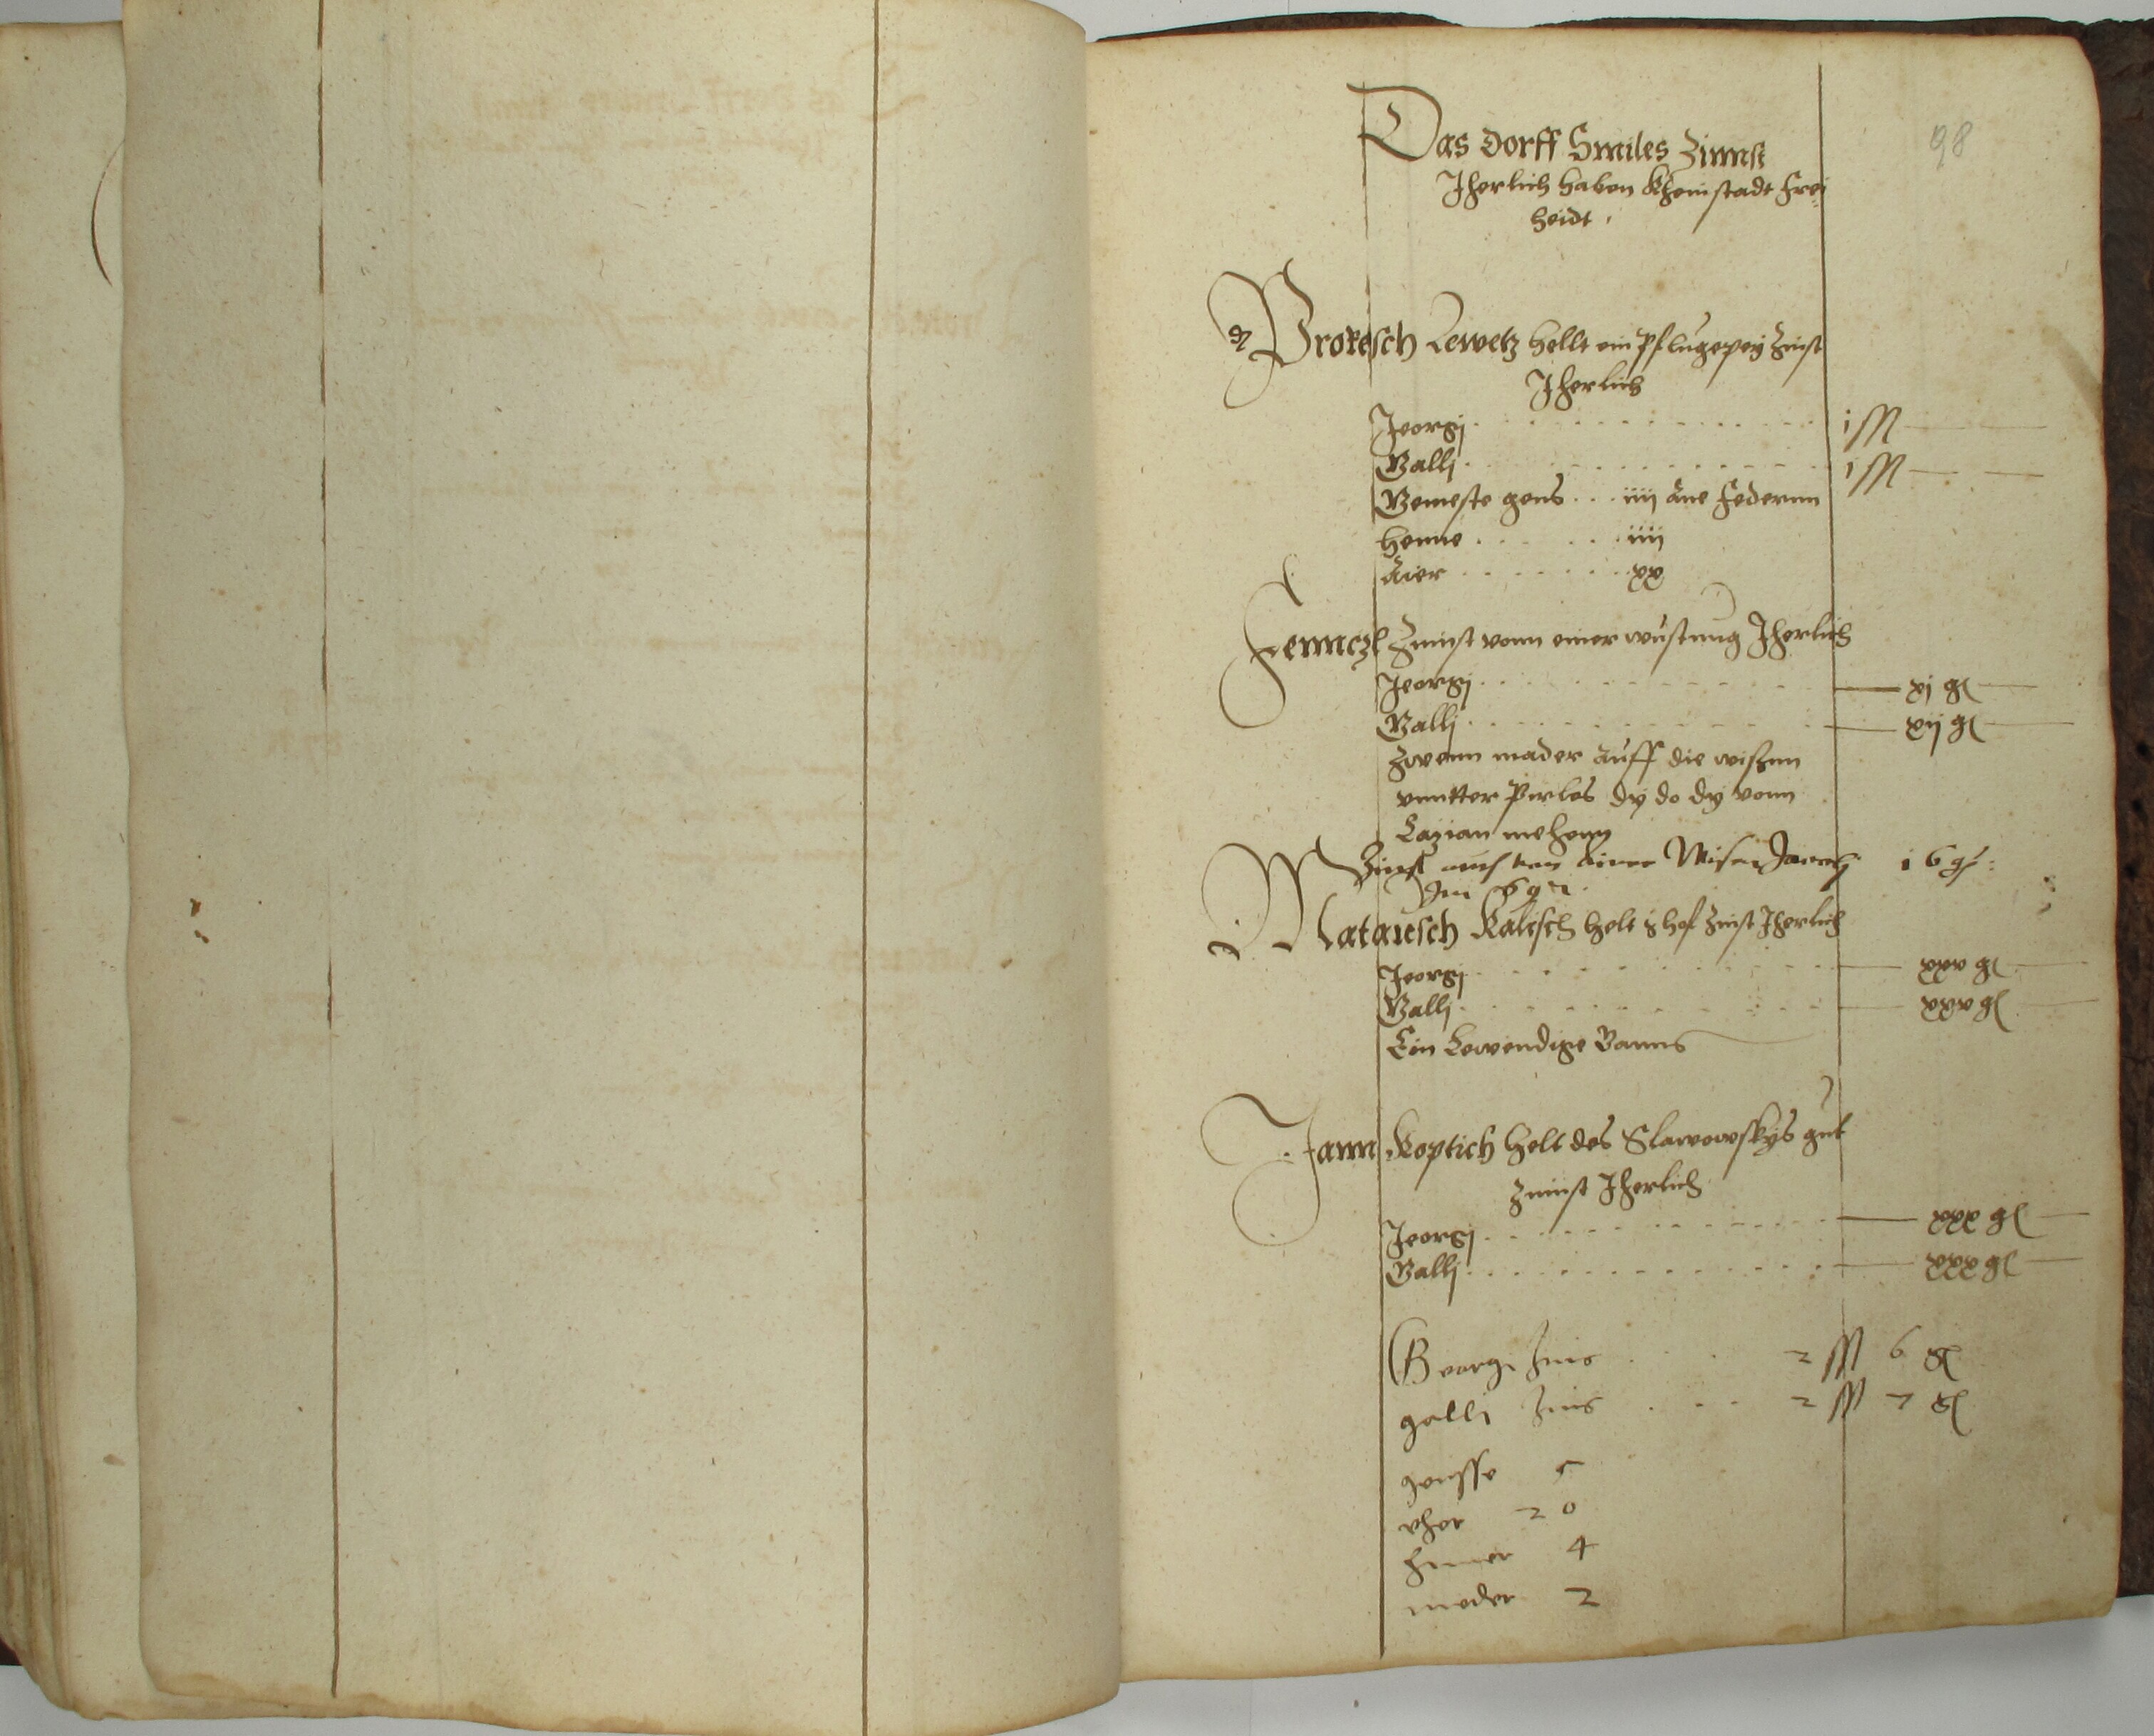 98
Das Dorff Smiles Zinnst
Iherlich haben Kheinstadt Frei
heidt
Prokesch Lewetz hellt ein Pflug Zinst
Iherlich
Jeorgj i ßß
Gallj i ßß
Gemeste gens iiij ane Federnn
Henne iiij
Aier xx
Jenczl Zinnst vonn einer wustung Iherlich
Jeorgj xj gl
Gallj xij gl
Zwenn mader auff die wisenn
vnntter Perles dy do dy vonn
Lazian mehenn
Zinst einer Wisen 16 gl
Im
Matausch Kalisch helt hof Zinst Iherlich
Jeorgj xxv gl
Gallj xxv gl
Ein Lewendige Ganns
Jann Koptich helt des Slawowskys gut
Zinnst Iherlich
Jeorgj xxx gl
Gallj xxx gl
Georgi Zins 2 ßß 6 gl
galli Zins 2 ßß 7 gl
gensse 5
20
hener 4
meder 2